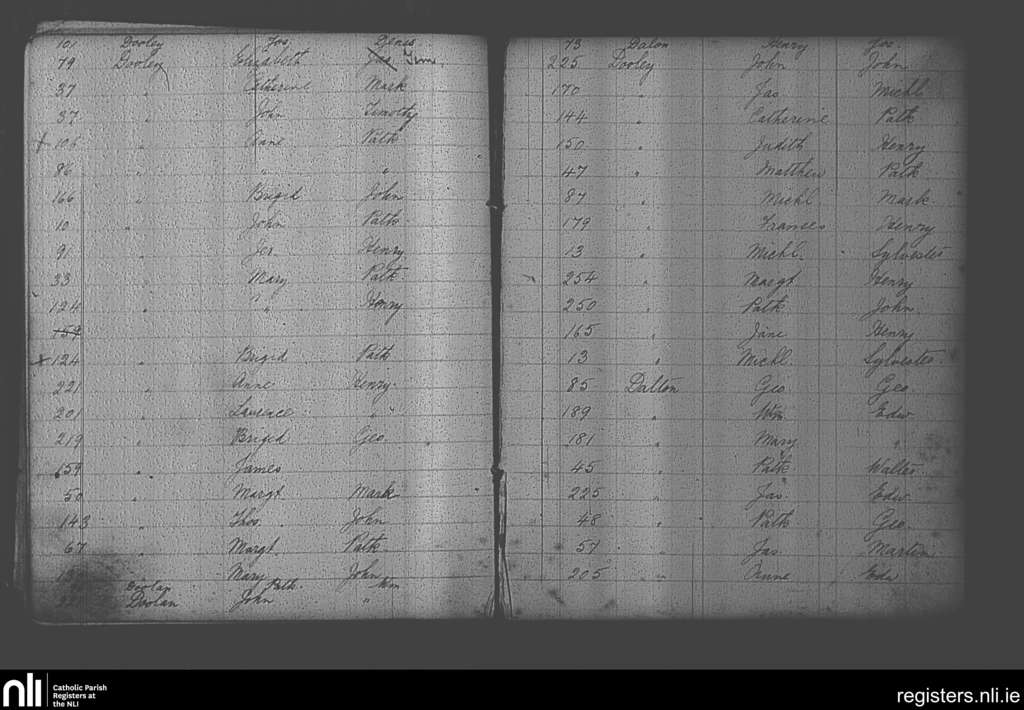 101 Dooley Jos
79 Dooley Elizabeth Jas
37 " Catherine Mark
37 " John Timothy
x 106 " Anne Patk
86 " " "
166 " Brigid John
10 " John Patk
91 " Jos Henry
33 " Mary Patk
124 " " Henry
159
x 124 " Brigid Patk
221 " Anne Henry
201 " Laurence "
219 " Brigid Geo
159 " James
50 " Margt Mark
143 " Thos. John
67 " Margt. Patk
Mary John
Doolan Patk Wm
Doolan John "
73 Dalon Henry Jos
225 Dooley John John
170 " Jas Michl
144 " Catherine Patk
150 " Judith Henry
47 " Matthew Patk
87 " Michl Mark
179 " Frances Henry
13 " Michl. Sylvester
254 " Margt Henry
250 " Patk John
165 " Jane Henry
13 " Michl. Sylvester
85 Dalton Geo Geo
189 " Wm Edw
181 " Mary "
45 " Patk Walter
225 " Jas Edw
48 " Patk Geo
57 " Jas Martin
205 " Anne Edw
nli Catholic Parish
Registers at
the NLI
registers.nli.ie